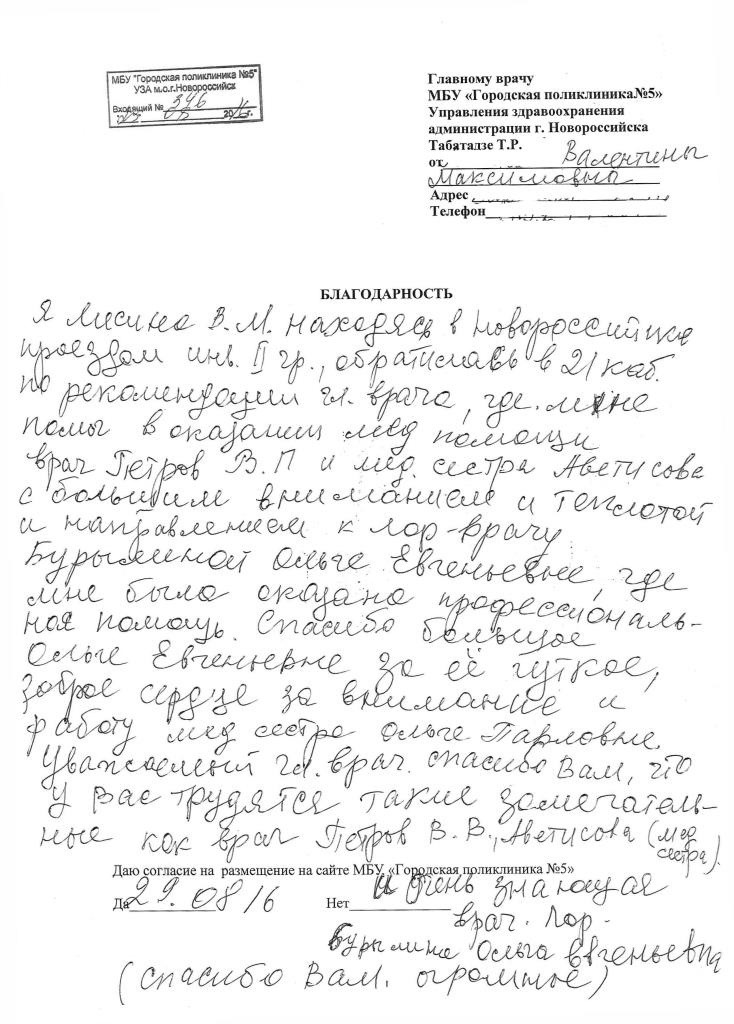 МБУ "Городская поликлиника №5"
УЗА м.о.г.Новороссийск
Входящий № 346
20 16 г.
Главному врачу
МБУ «Городская поликлиника№5»
Управления здравоохранения
администрации г. Новороссийска
Табатадзе Т.Р.
от Валентины
Максимовны
Адрес
Телефон
БЛАГОДАРНОСТЬ
Я Лисина В.М. находясь в Новороссийске
проездом инв. II гр., обратилась в 21 каб.
по рекомендации гл. врача, где мне
помог в оказании мед помощи
врач Петров В.П и мед. сестра Аветисова
с большим вниманием и теплотой
и направлением к лор-врачу
Бурылиной Ольге Евгеньевне, где
мне была оказана профессиональ-
ная помощь. Спасибо большое
Ольге Евгеньевне за её чуткое,
доброе сердце за внимание и
работу мед сестре Ольге Павловне.
Уважаемый гл. врач. спасибо Вам, что
у Вас трудятся такие замечатель-
ные как врач Петров В.В., Аветисова (мед
сестра).
Даю согласие на размещение на сайте МБУ «Городская поликлиника №5»
Да 29.08 16 Нет
и очень знающая
врач. Лор-
Бурылина Ольга Евгеньевна
(Спасибо Вам. огромное)